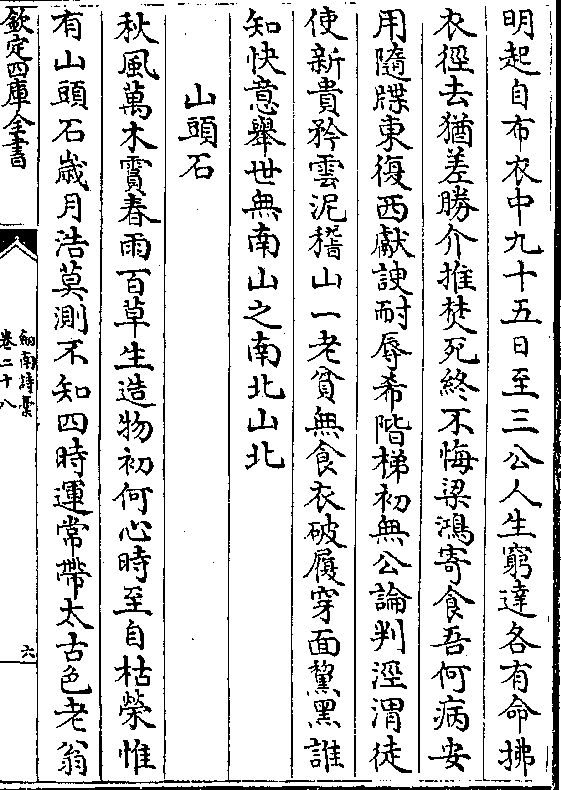 明起自布衣中九十五日至三公人生窮達各有命拂
衣徑去猶差勝介推焚死終不悔梁鴻寄食吾何病安
用隨牒東復西獻諛耐辱希階梯初無公論判涇渭徒
使新貴矜雲泥稽山一老貧無食衣破履穿面黧黑誰
知快意舉世無南山之南北山北
山頭石
秋風萬木霣春雨百草生造物初何心時至自枯榮惟
有山頭石嵗月浩莫測不知四時運常帶太古色老翁
欽定四庫全書
劒南詩稾
卷二十八
六